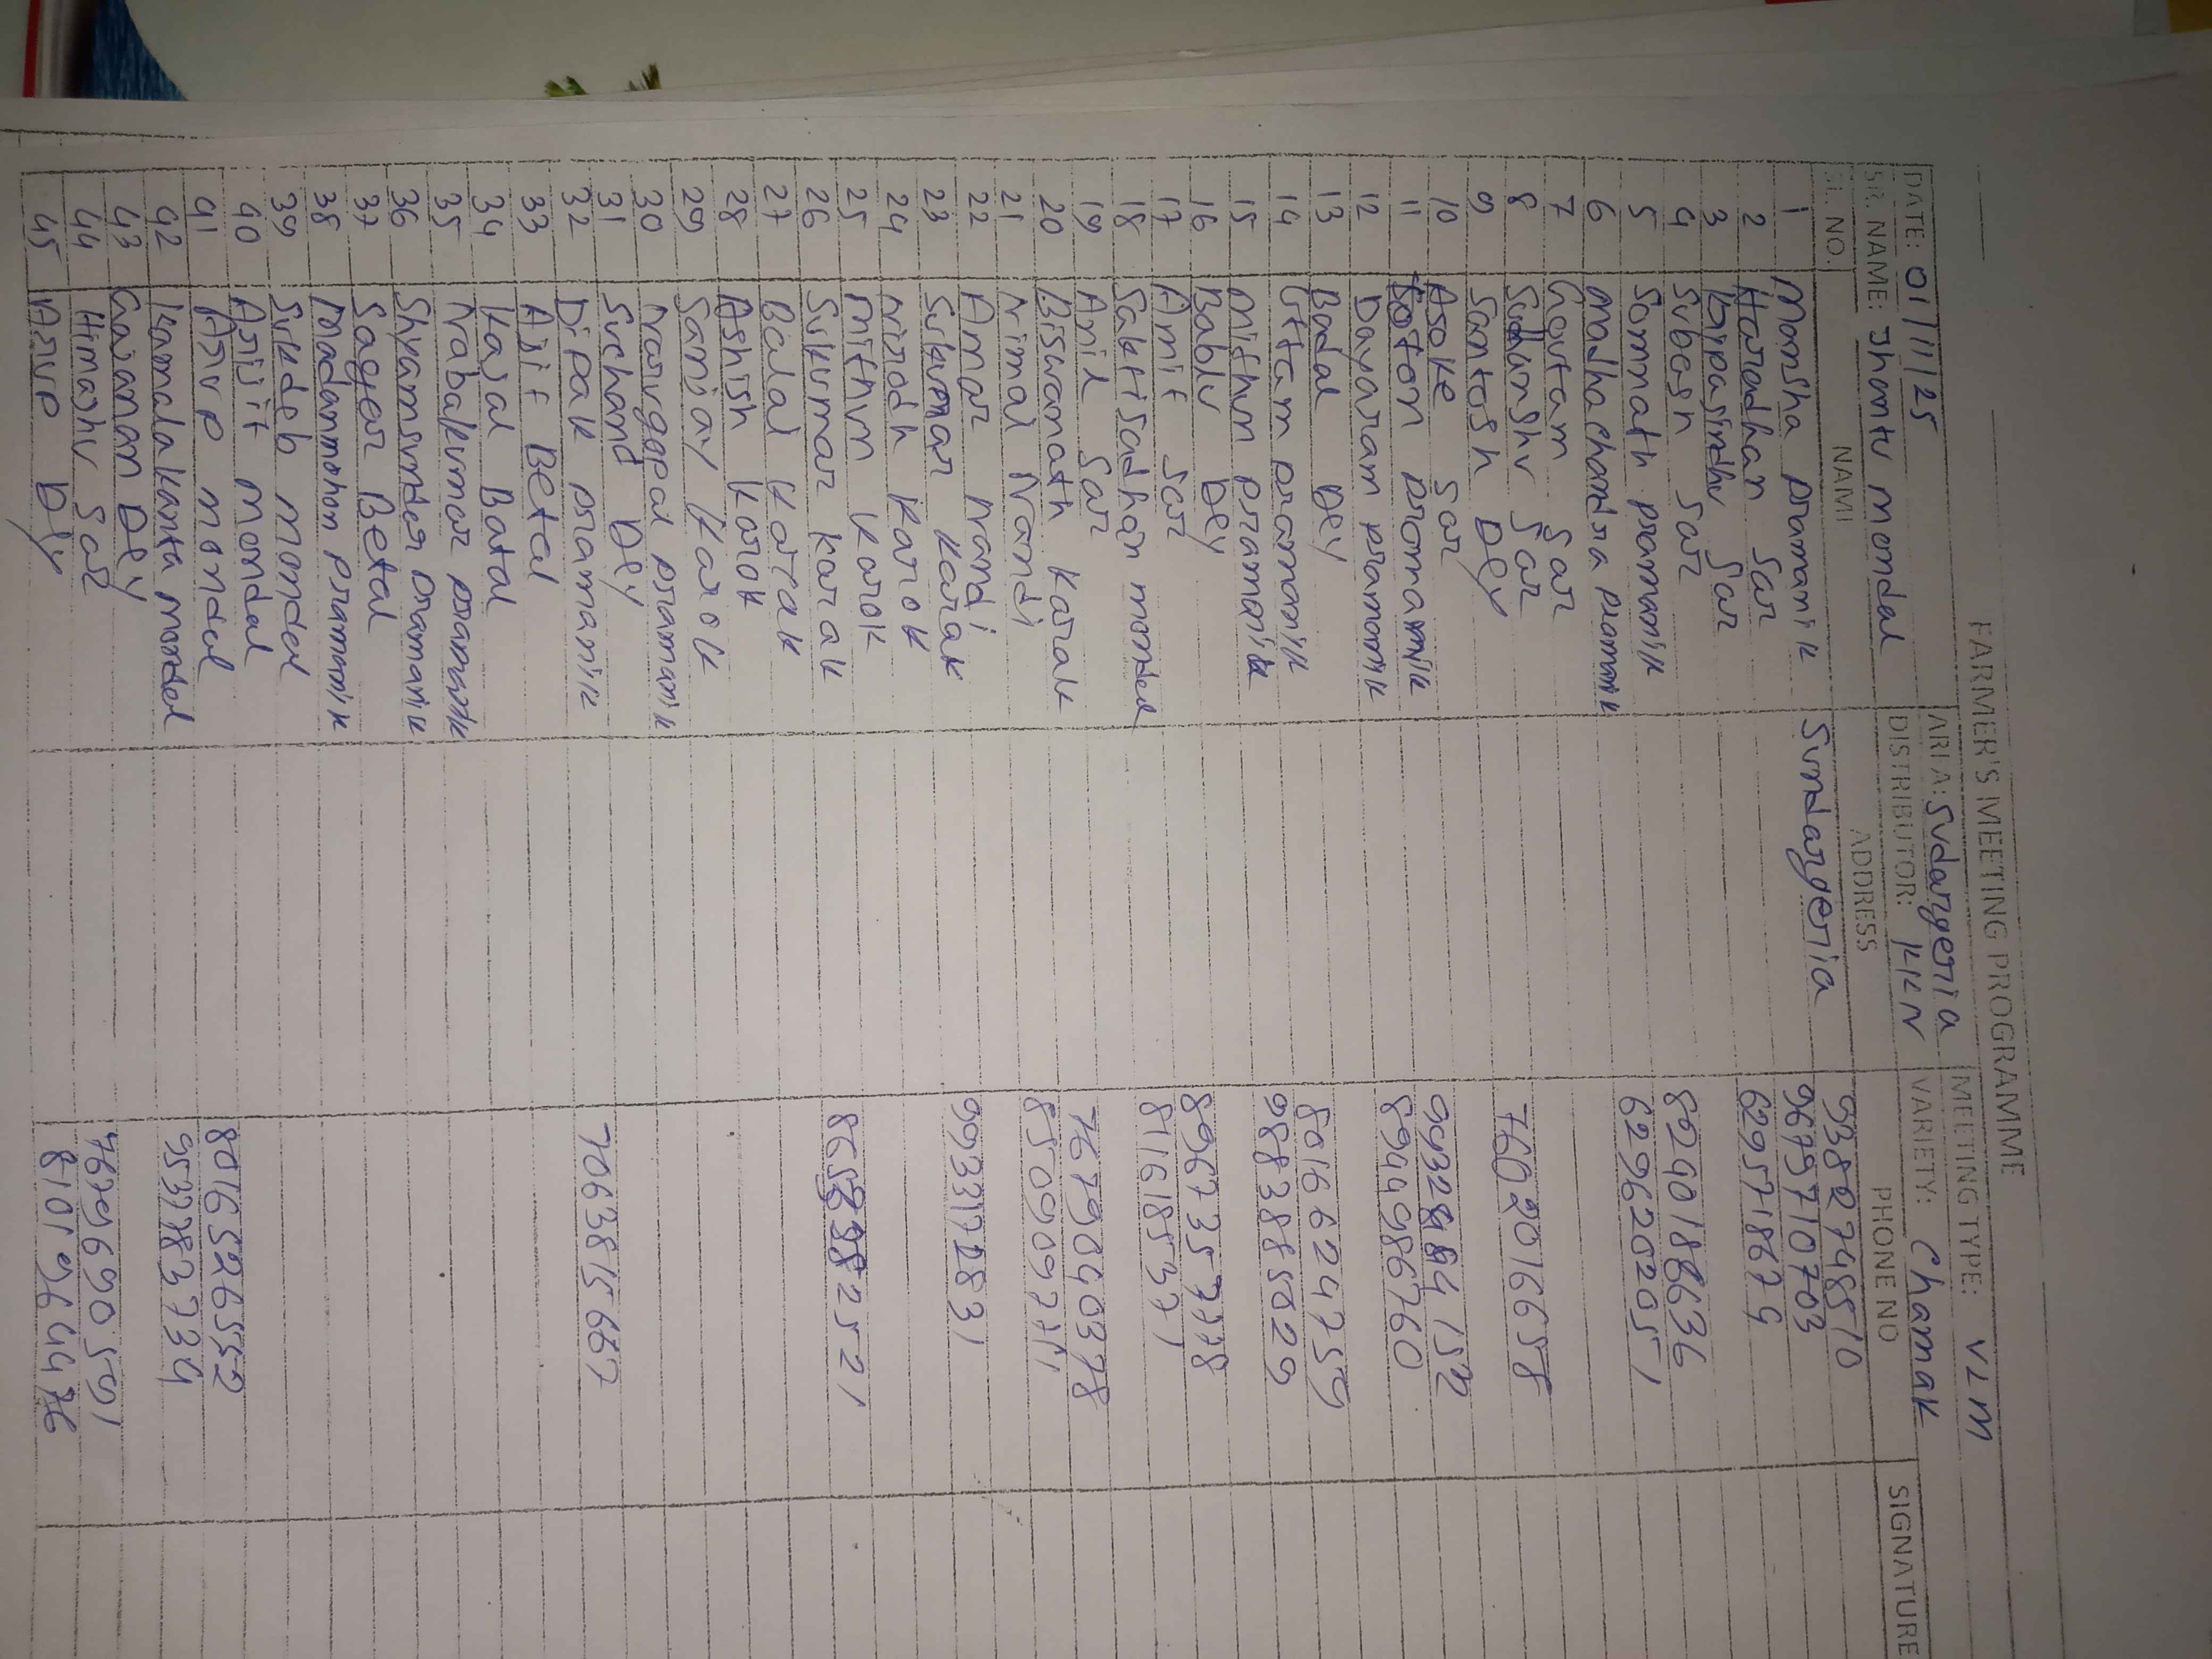 FARMER'S MEETING PROGRAMME
DATE: 01/11/25 AREA: Sudargeria MEETING TYPE: VLM
SR. NAME: Jhantu mondal DISTRIBUTOR: KKN VARIETY: Chamak
SL. NO. NAME ADDRESS PHONE NO SIGNATURE
1 Monsha pramanik Sundargeria 9382748510
2 Haradhan Sar 9679710703
3 Kripasindhu Sar 6295718674
4 Subash Sar
5 Somnath pramanik 8240018636
6 madhachandra pramanik 6296202051
7 Goutam Sar
8 Sudhanshu Sar
9 Santosh Dey 7602016658
10 Asoke Sar
11 pramanik
12 Dayaram pramanik 8944986760
13 Badal Dey
14 Uttam pramanik 8016624759
15 mithun pramanik 9883885029
16 Bablu Dey
17 Amit Sar 8967357778
18 Saktisadhan mondal 8116185371
19 Anil Sar
20 Biswanath Karak 7679040378
21 Nimai Nandi 8509097711
22 Amar Nandi
23 Sukumar Karak 9933172831
24 nirodh Karok
25 mithun Karok
26 Sukumar Karak
27 Badal Karak
28 Ashish Karok
29 Sanjay Karok
30 Narugopal pramanik
31 Suchand Dey
32 Dipak pramanik 7063815667
33 Ajit Betal
34 Kajal Batal
35 Nabakumar pramanik
36 Shyamsundar pramanik
37 Sagar Betal
38 madanmohon pramanik
39 Sukdeb mondal
40 Asit mondal
41 Anup mondal 8016526552
42 Kamalakanta mondal 9537783734
43 Gaianan Dey
44 Himashu Sar 7679690591
45 Anup Dey 8101964476